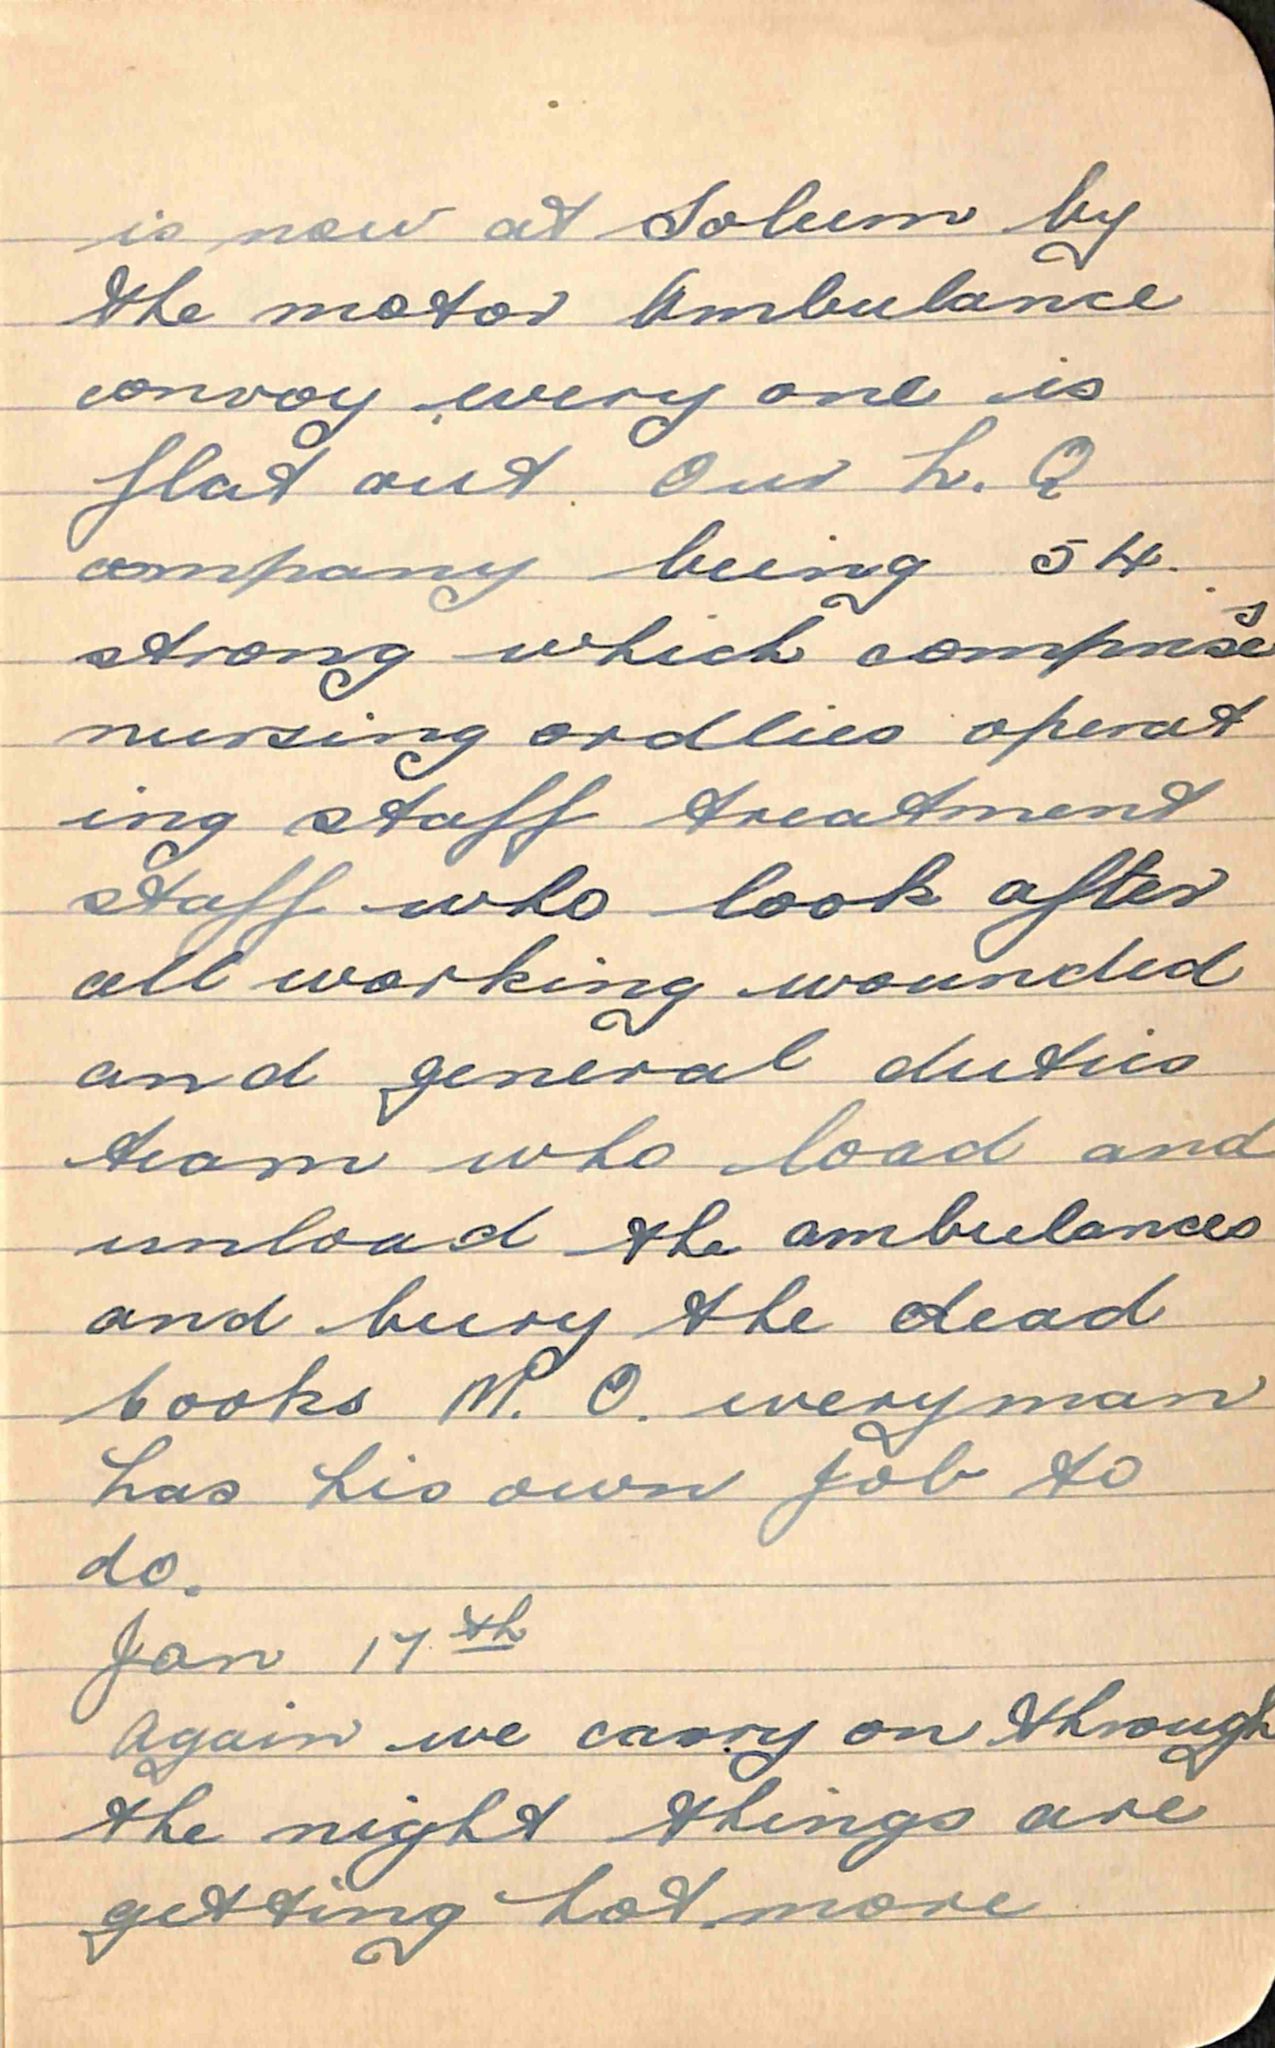 is now at Solum by
the motor Ambulance
convoy every one is
flat out. Our h. Q
company being 54.
strong which comprises
nursing ordlies operat
ing staff treatment
staff who look after
all working wounded
and general duties
team who load and
unload the ambulances
and bury the dead
cooks M. O. everyman
has his own job to
do.
Jan 17th
Again we carry on through
the night things are
getting hot more